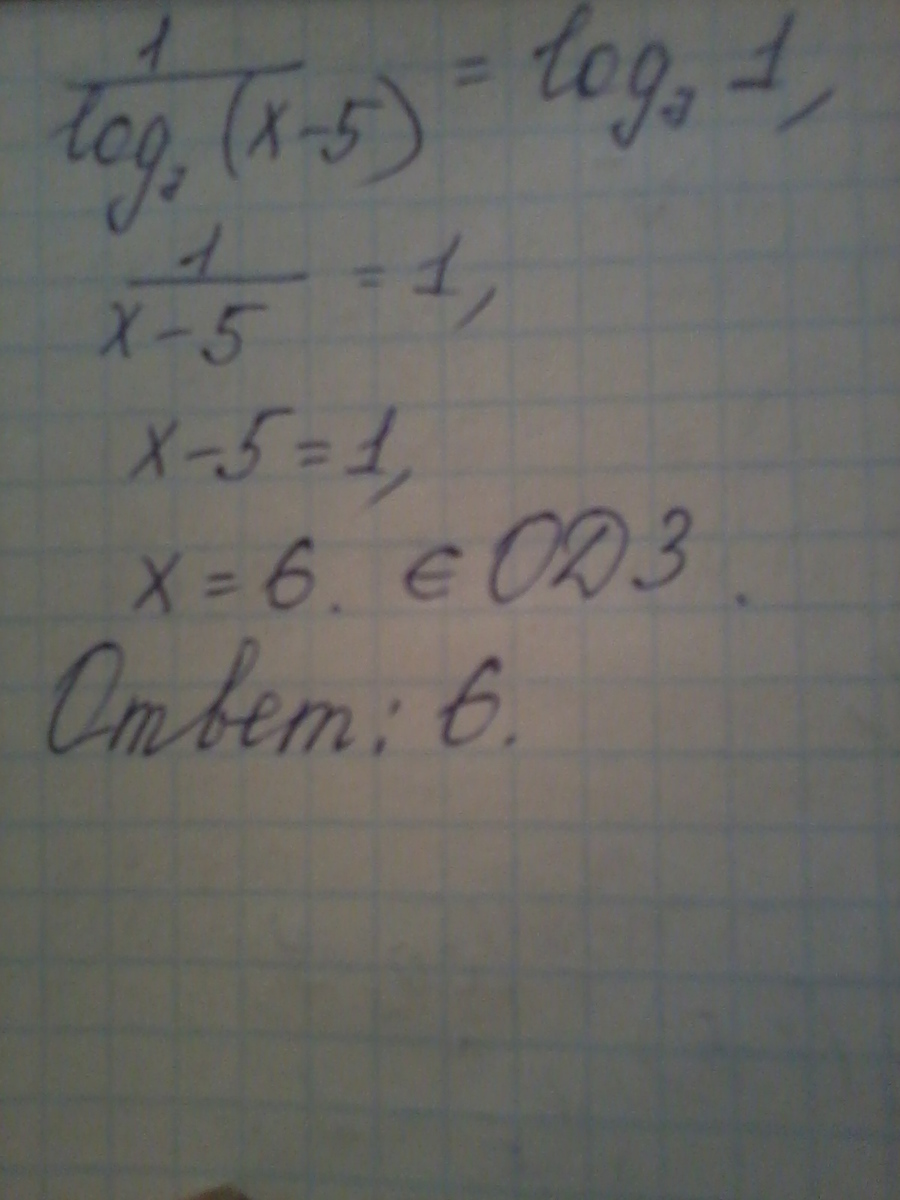 1 / log₂ (x-5) = log₂ 1,
1 / x-5 = 1,
x-5=1,
x=6. ∈ ОДЗ.
Ответ: 6.